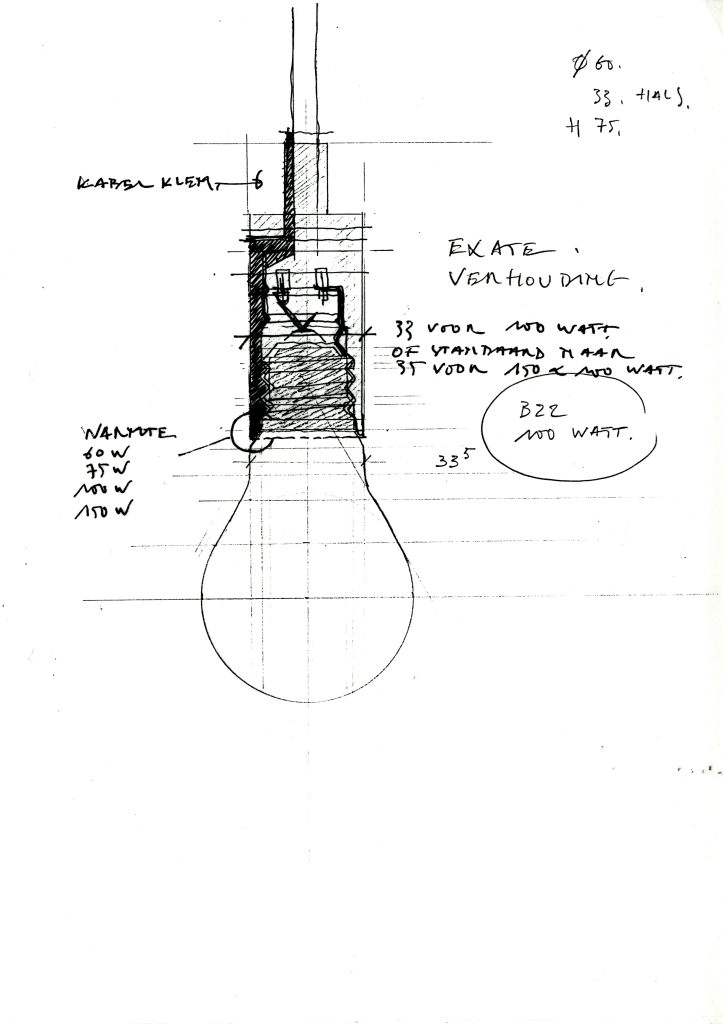 Ø 60.
33. HALS.
H 75.
KABEL KLEM. 6
EXATE.
VERHOUDING.
33 VOOR 100 WATT
OF STANDAARD MAAR
35 VOOR 150 & 100 WATT.
B22
100 WATT.
33⁵
WARMTE
60 W
75 W
100 W
150 W